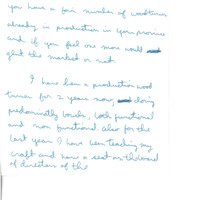 you have a fair number of woodturners
already in production in your province
and if you feel one more would
glut the market or not.
I have been a production wood
turner for 2 years now, doing
predominantly bowls, both functional
and non functional also for the
last year I have been teaching my
craft and have a seat on the board
of directors of the